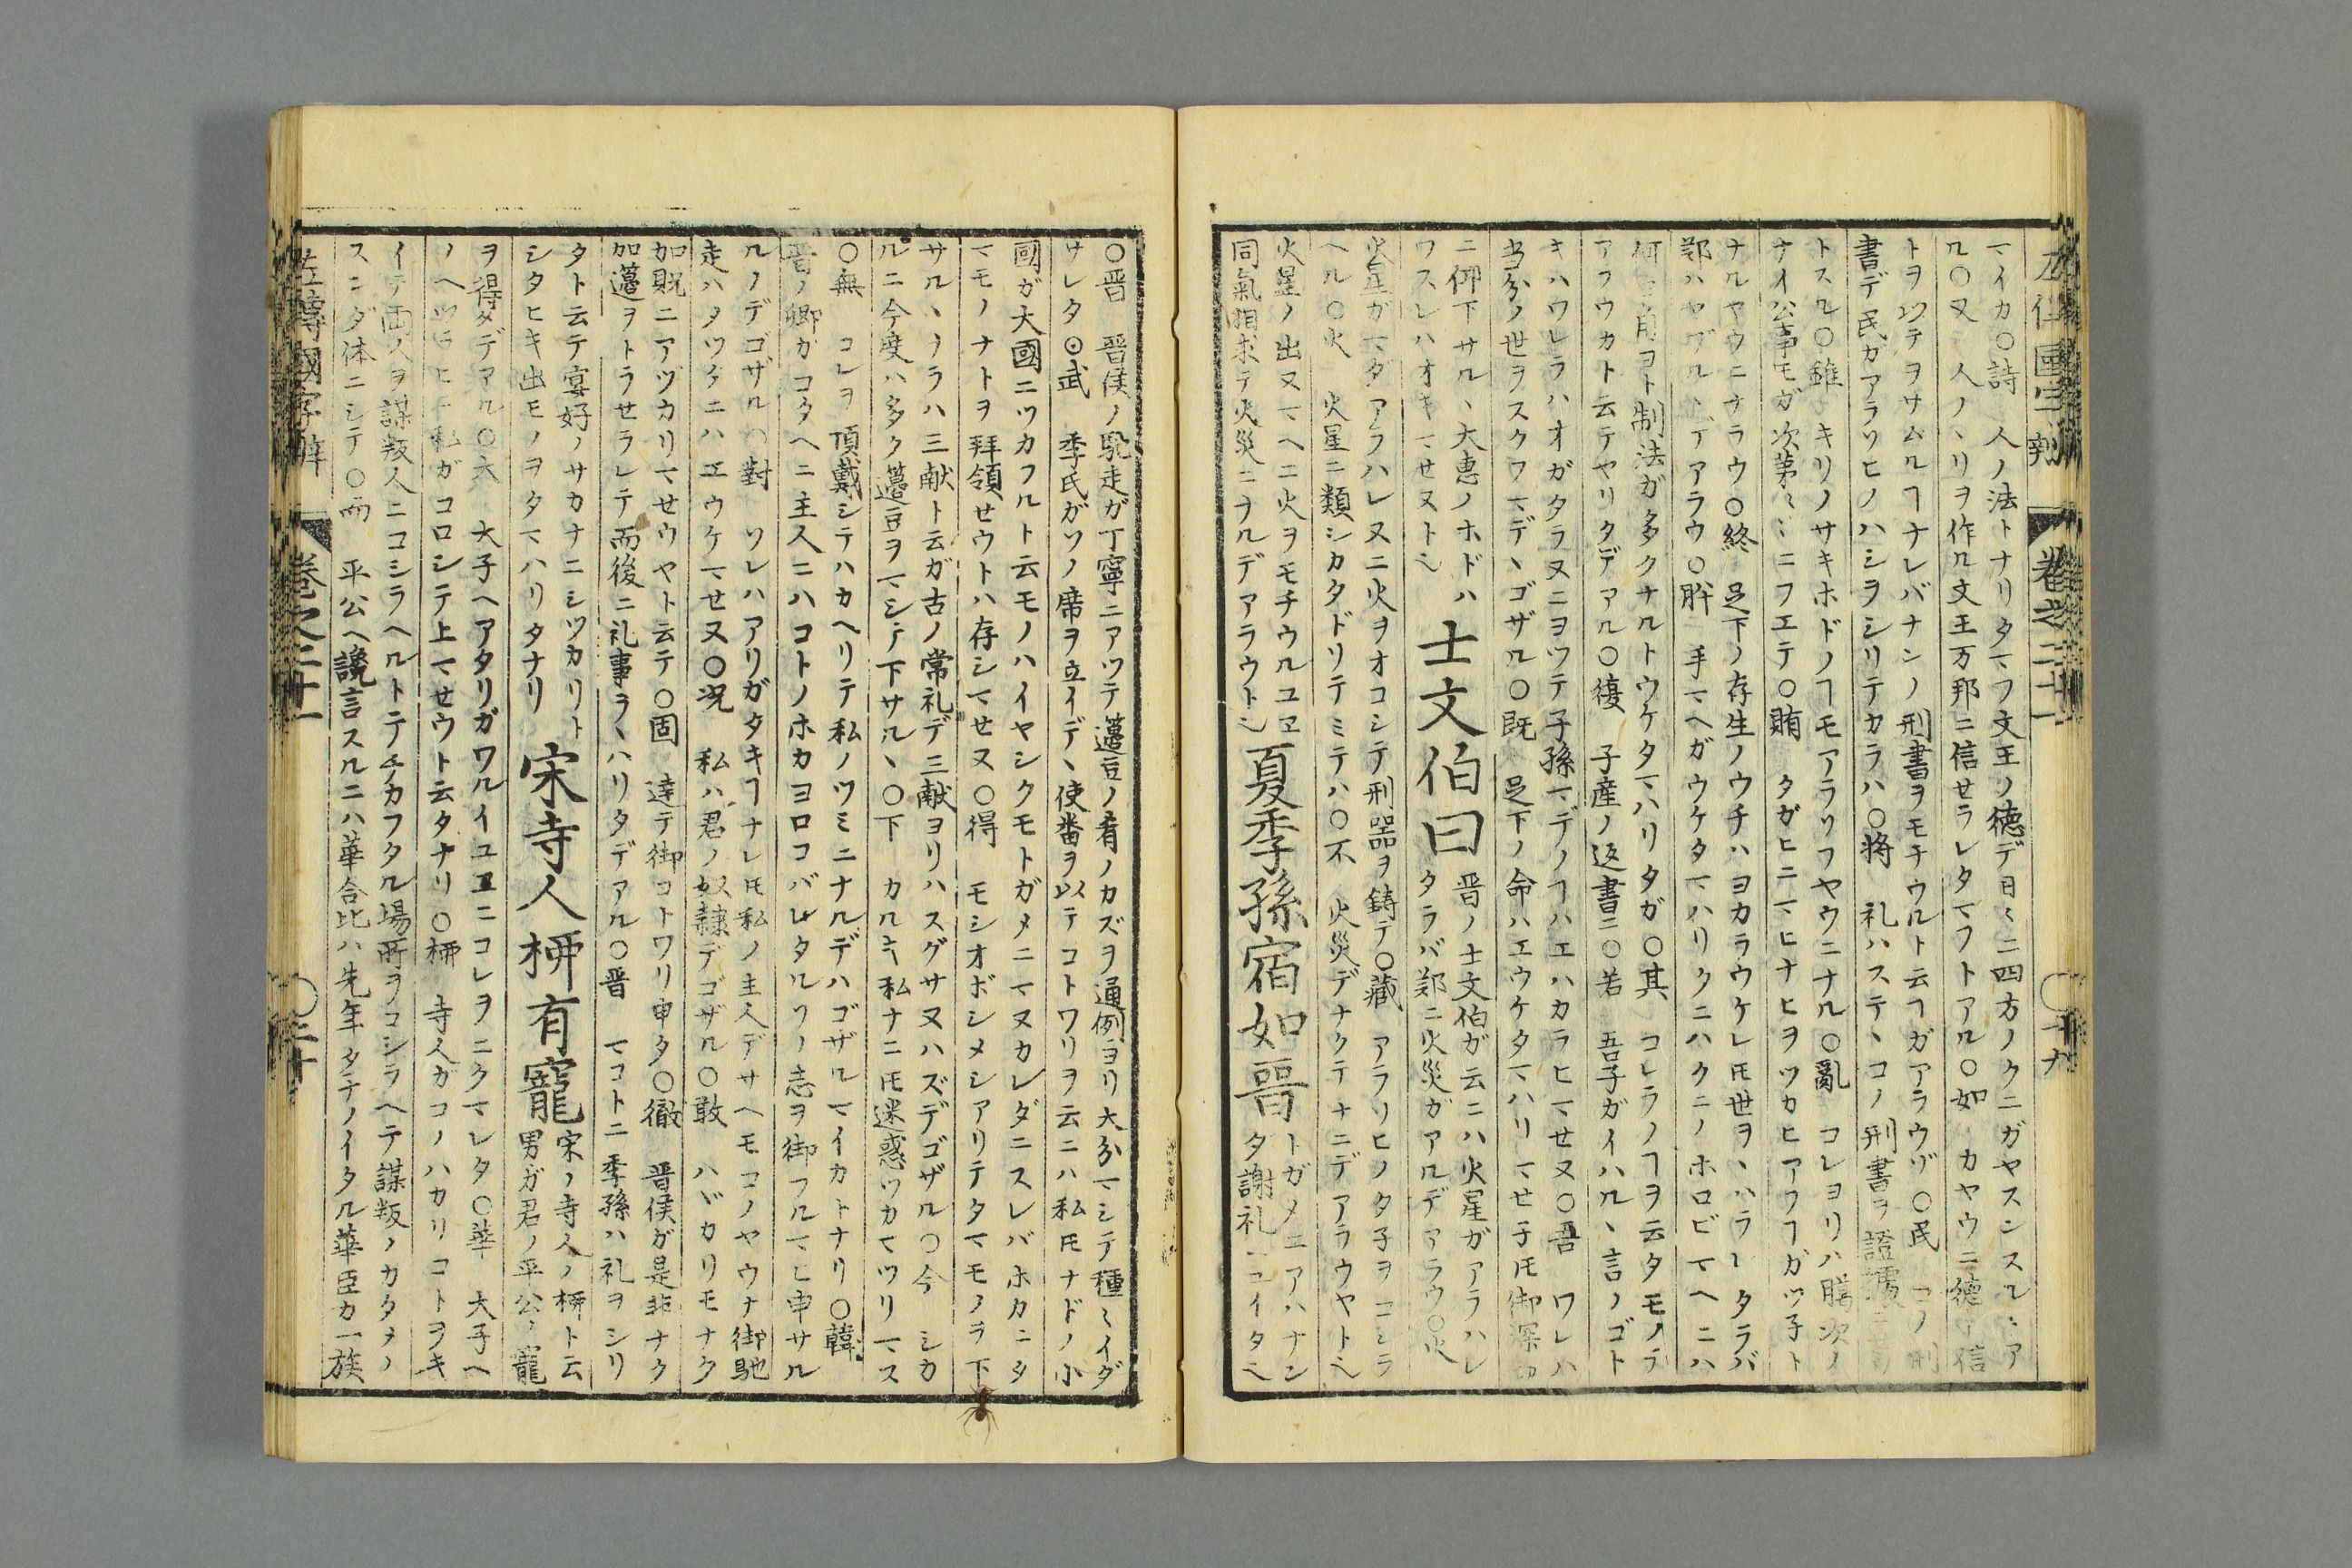 左傳國字辨　卷之二十一　十九
マイカ〇詩　人ノ法トナリタマフ文王ノ徳デ日々ニ四方ノクニガヤスンスルヽア
ル〇又　人ノヽリヲ作ル文王万邦ニ信セラレタマフトアル〇如　カヤウニ徳ト信
トヲ以テヲサムルヿナレバナンノ刑書ヲモチウルト云ヿガアラウゾ〇民　コノ刑
書デ民カアラソヒノハシヲシリテカラハ〇將　礼ハステヽコノ刑書ヲ證據ニ
トスル〇錐　キリノサキホドノヿモアラソフヤウニナル〇亂　コレヨリハ賜次ノ
ナイ公事モガ次第々々ニフエテ〇賄　タガヒニマヒナヒヲツカヒアフヿガツ子ト
ナルヤウニナラウ〇終　足下ノ存生ノウチハヨカラウケレ𪜈世ヲヽハラレタラバ
鄭ハヤブルヽデアラウ〇肸　手マヘガウケタマハリクニハクニノホロビマヘニハ
何ニ角ヨト制法ガ多クナルトウケタマハリタガ〇其　コレラノヿヲ云タモノデ
アラウカト云テヤリタデアル〇復　子産ノ返書ニ〇若　吾子ガイハルヽ言ノゴト
キハワレラハオガタラヌニヨツテ子孫マデノヿハエハカラヒマせヌ〇吾　ワレハ
当分ノ世ヲスクフマデヽゴザル〇既　足下ノ命ハエウケタマハリマせ子𪜈御深切
ニ仰下サルヽ大惠ノホドハ
ワスレハオキマせヌト也
士文伯曰
晋ノ士文伯ガ云ニハ火星ガアラハレ
タラバ鄭ニ火災ガアルデアラウ〇火
火星ガマダアラハレヌニ火ヲオコシテ刑器ヲ鋳テ〇蔵　アラソヒノタ子ヲコシラ
ヘル〇火　火星ニ類シカタドリテミテハ〇不　火災デナクテナニデアラウヤト也
火星ノ出ヌマヘニ火ヲモチウルユヱ
同氣相求テ火災ニナルデアラウト也
夏季孫宿如晋
トガメニアハナン
タ謝礼ニコイタ也
〇晋　晋侯ノ馳走ガ丁寧ニアツテ籩豆ノ肴ノカズヲ通例ヨリ大分マシテ種々イダ
サレタ⊙武　季氏ガソノ席ヲ立イデヽ使番ヲ以テコトワリヲ云ニハ私𪜈ナドノ小
國ガ大國ニツカフルト云モノハイヤシクモトガメニマヌカレダニスレバホカニタ
マモノナトヲ拜領せウトハ存シマせヌ〇得　モシオボシメシアリテタマモノヲ下
サルヽナラハ三献ト云ガ古ノ常礼デ三献ヨリハスグサヌハズデゴザル〇今　シカ
ルニ今度ハ多ク籩豆ヲマシテ下サルヽ〇下　カルキ私ナニ𪜈迷惑ツカマツリマス
〇無　コレヲ頂戴シテハカヘリテ私ノツミニナルデハゴザルマイカトナリ〇韓
晋ノ卿ガコタヘニ主人ニハコトノホカヨロコバレタルソノ志ヲ御フルマヒ申サル
ルノデゴザル〇對　ソレハアリガタキヿナレ𪜈私ノ主人デサヘモコノヤウナ御馳
走ハタツタニハエウケマせヌ〇况　私ハ君ノ奴隷デゴザル〇敢　ハヾカリモナク
加貺ニアヅカリマせウヤト云テ〇固　達テ御コトワリ申タ〇徹　晋侯ガ是非ナク
加籩ヲトラせラレテ而後ニ礼事ヲヽハリタデアル〇晋　マコトニ季孫ハ礼ヲシリ
タト云テ宴好ノサカナニシツカリト
シタヒキ出モノヲタマハリタナリ
宋寺人栁有寵
宋ノ寺人ノ栁ト云
男ガ君ノ平公ノ寵
ヲ得タデアル〇大　大子ヘアタリガワルイユヱニコレヲニクマレタ〇華　大子ヘ
ノヘツラヒニ私ガコロシテ上マせウト云タナリ〇栁　寺人ガコノハカリコトヲキ
イテ両人ヲ謀叛人ニコシラヘルトテチカフタル場所ヲコシラヘテ謀叛ノカタチノ
スンダ体ニシテ〇而　平公ヘ讒言スルニハ華合比ハ先年タチノイタル華臣カ一族
左傳國字辨　卷之二十一　二十